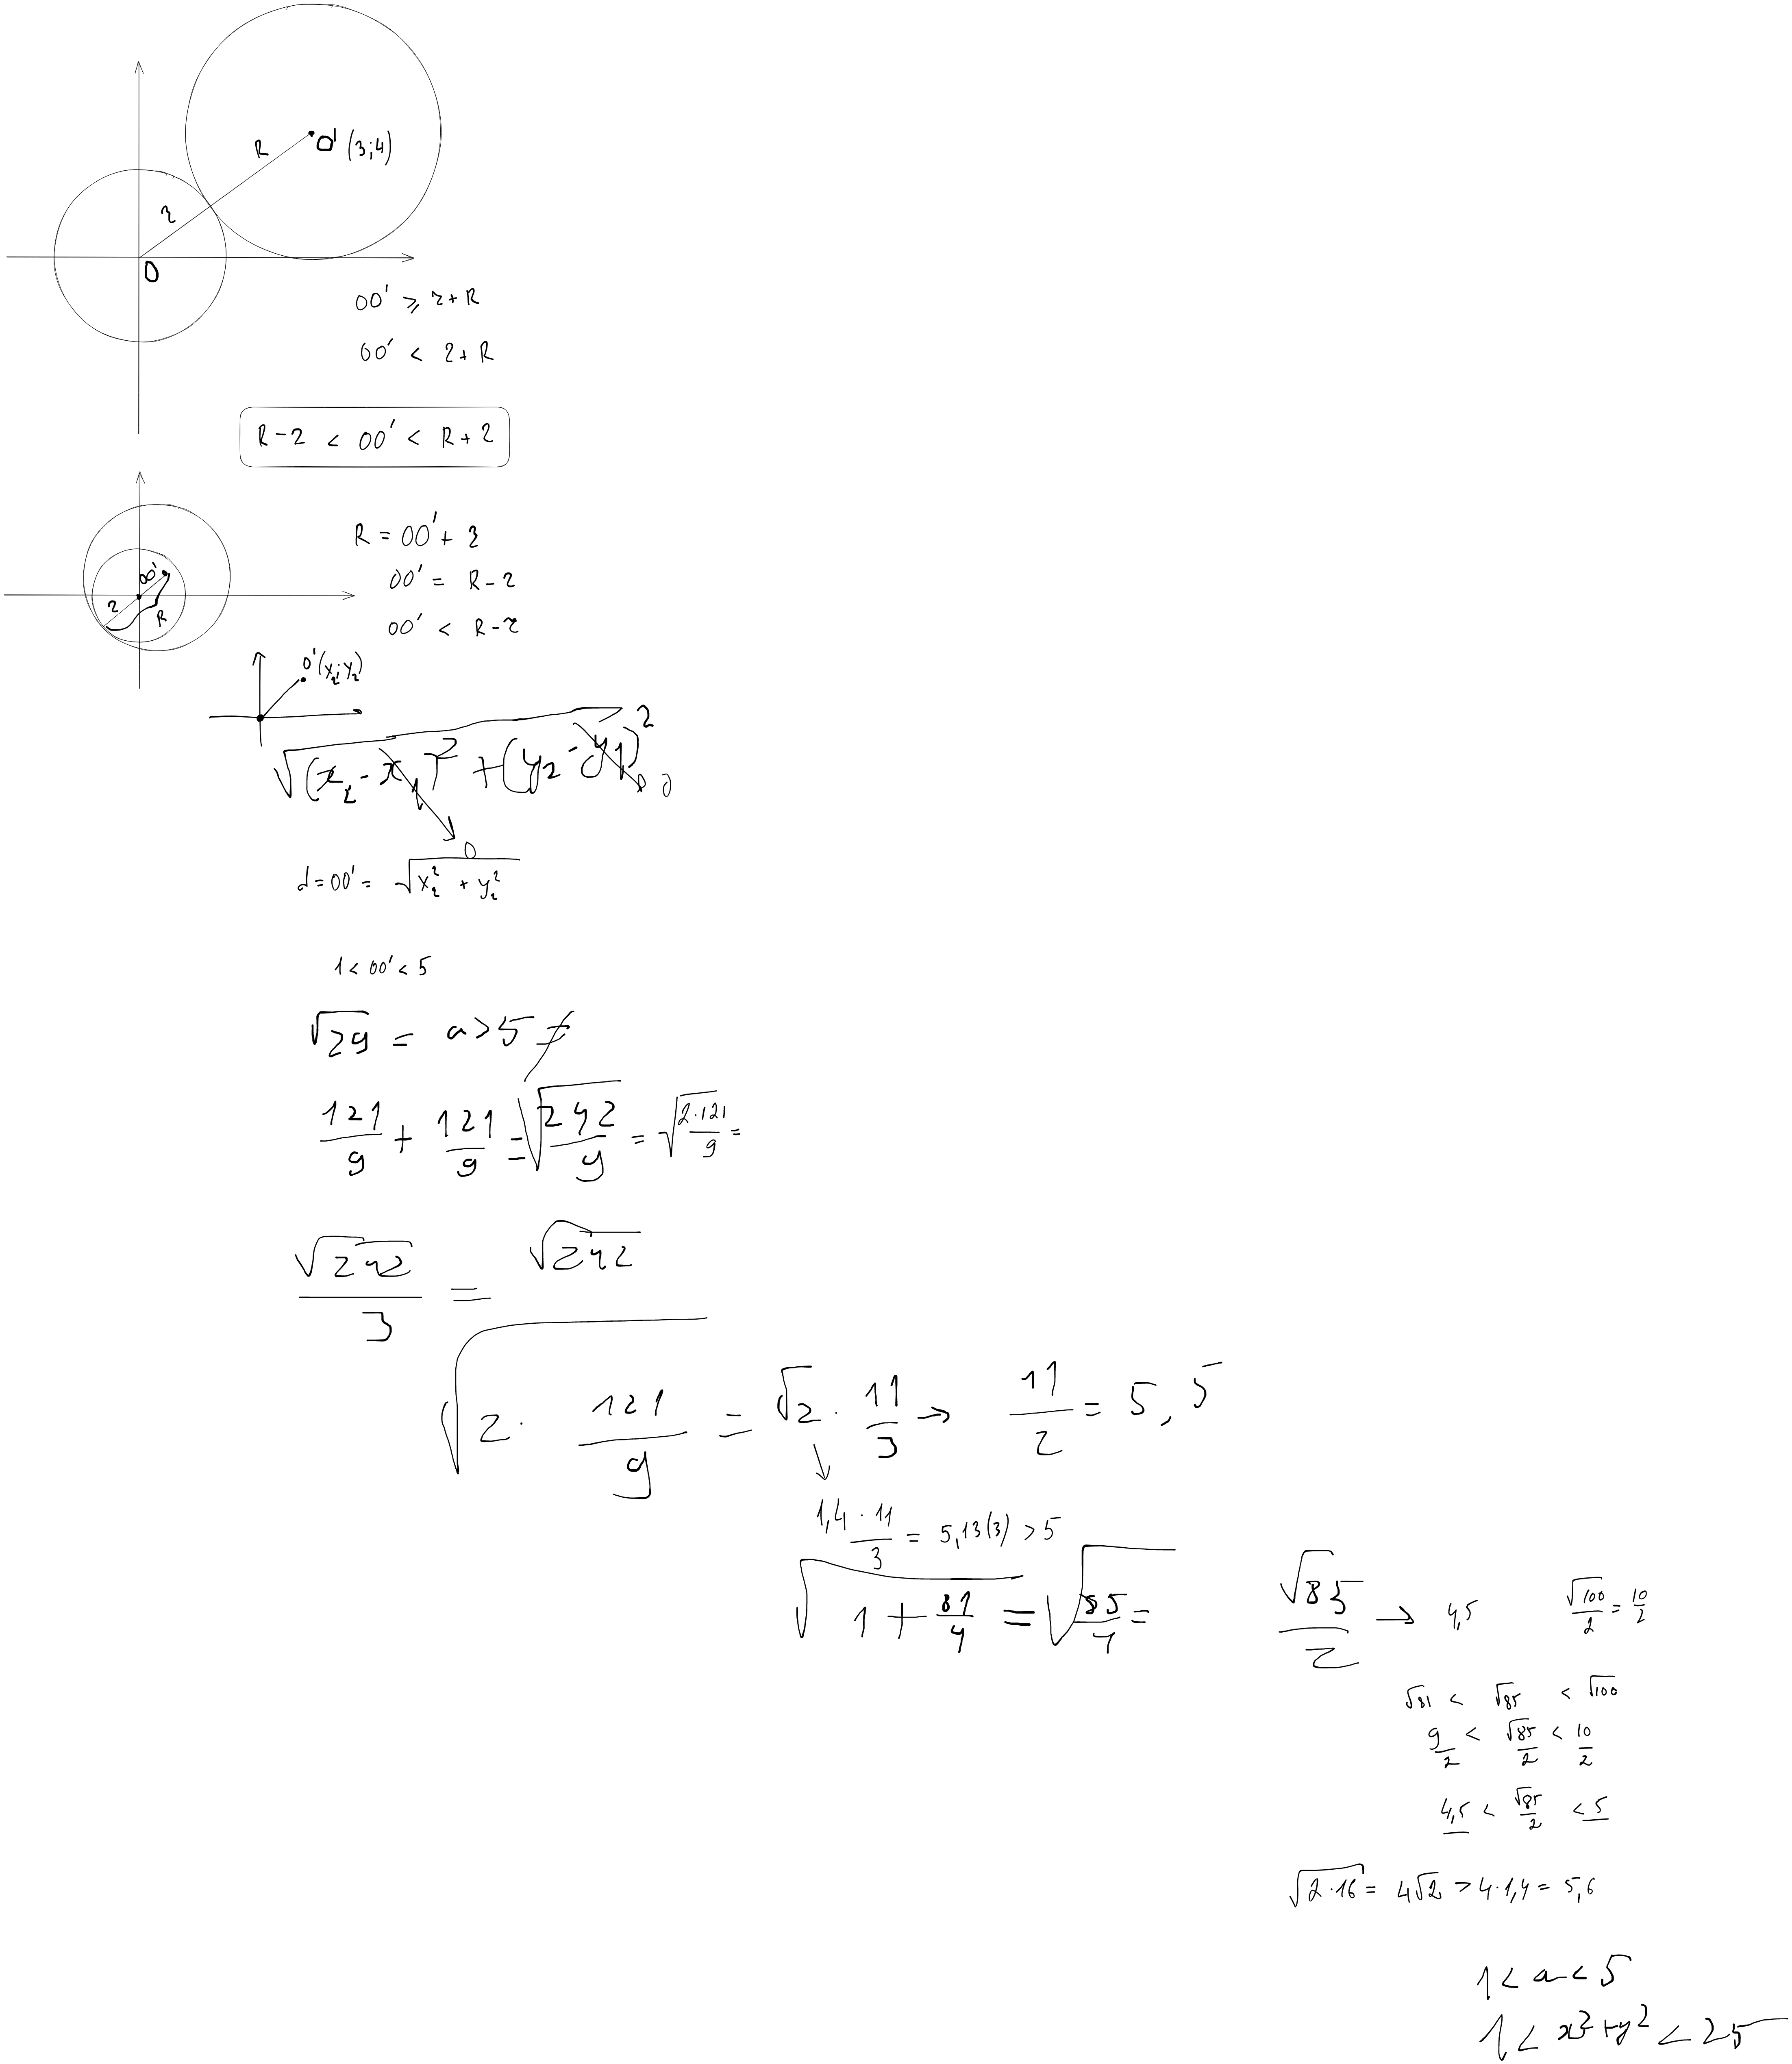 R
O' (3;4)
r
O
OO' ⩾ r + R
OO' < r + R
R - r < OO' < R + r
R = OO' + r
OO' = R - r
OO' < R - r
OO'
r
R
O'(x₂; y₂)
√((x₂ - x₁)² + (y₂ - y₁)²)
0
0
d = OO' = √(x₂² + y₂²)
1 < OO' < 5
√29 = a > 5 ≠
121/9 + 121/9 = √(242/9) = √(2·121/9) =
√242/3 = √242
√(2 · 121/9) = √2 · 11/3 → 11/2 = 5,5
1,4 · 11/3 = 5,13(3) > 5
√(1 + 81/4) = √(85/4) = √85/2 → 4,5 √100/2 = 10/2
√81 < √85 < √100
9/2 < √85/2 < 10/2
4,5 < √85/2 < 5
√(2·16) = 4√2 > 4·1,4 = 5,6
1 < a < 5
1 < x² + y² < 25